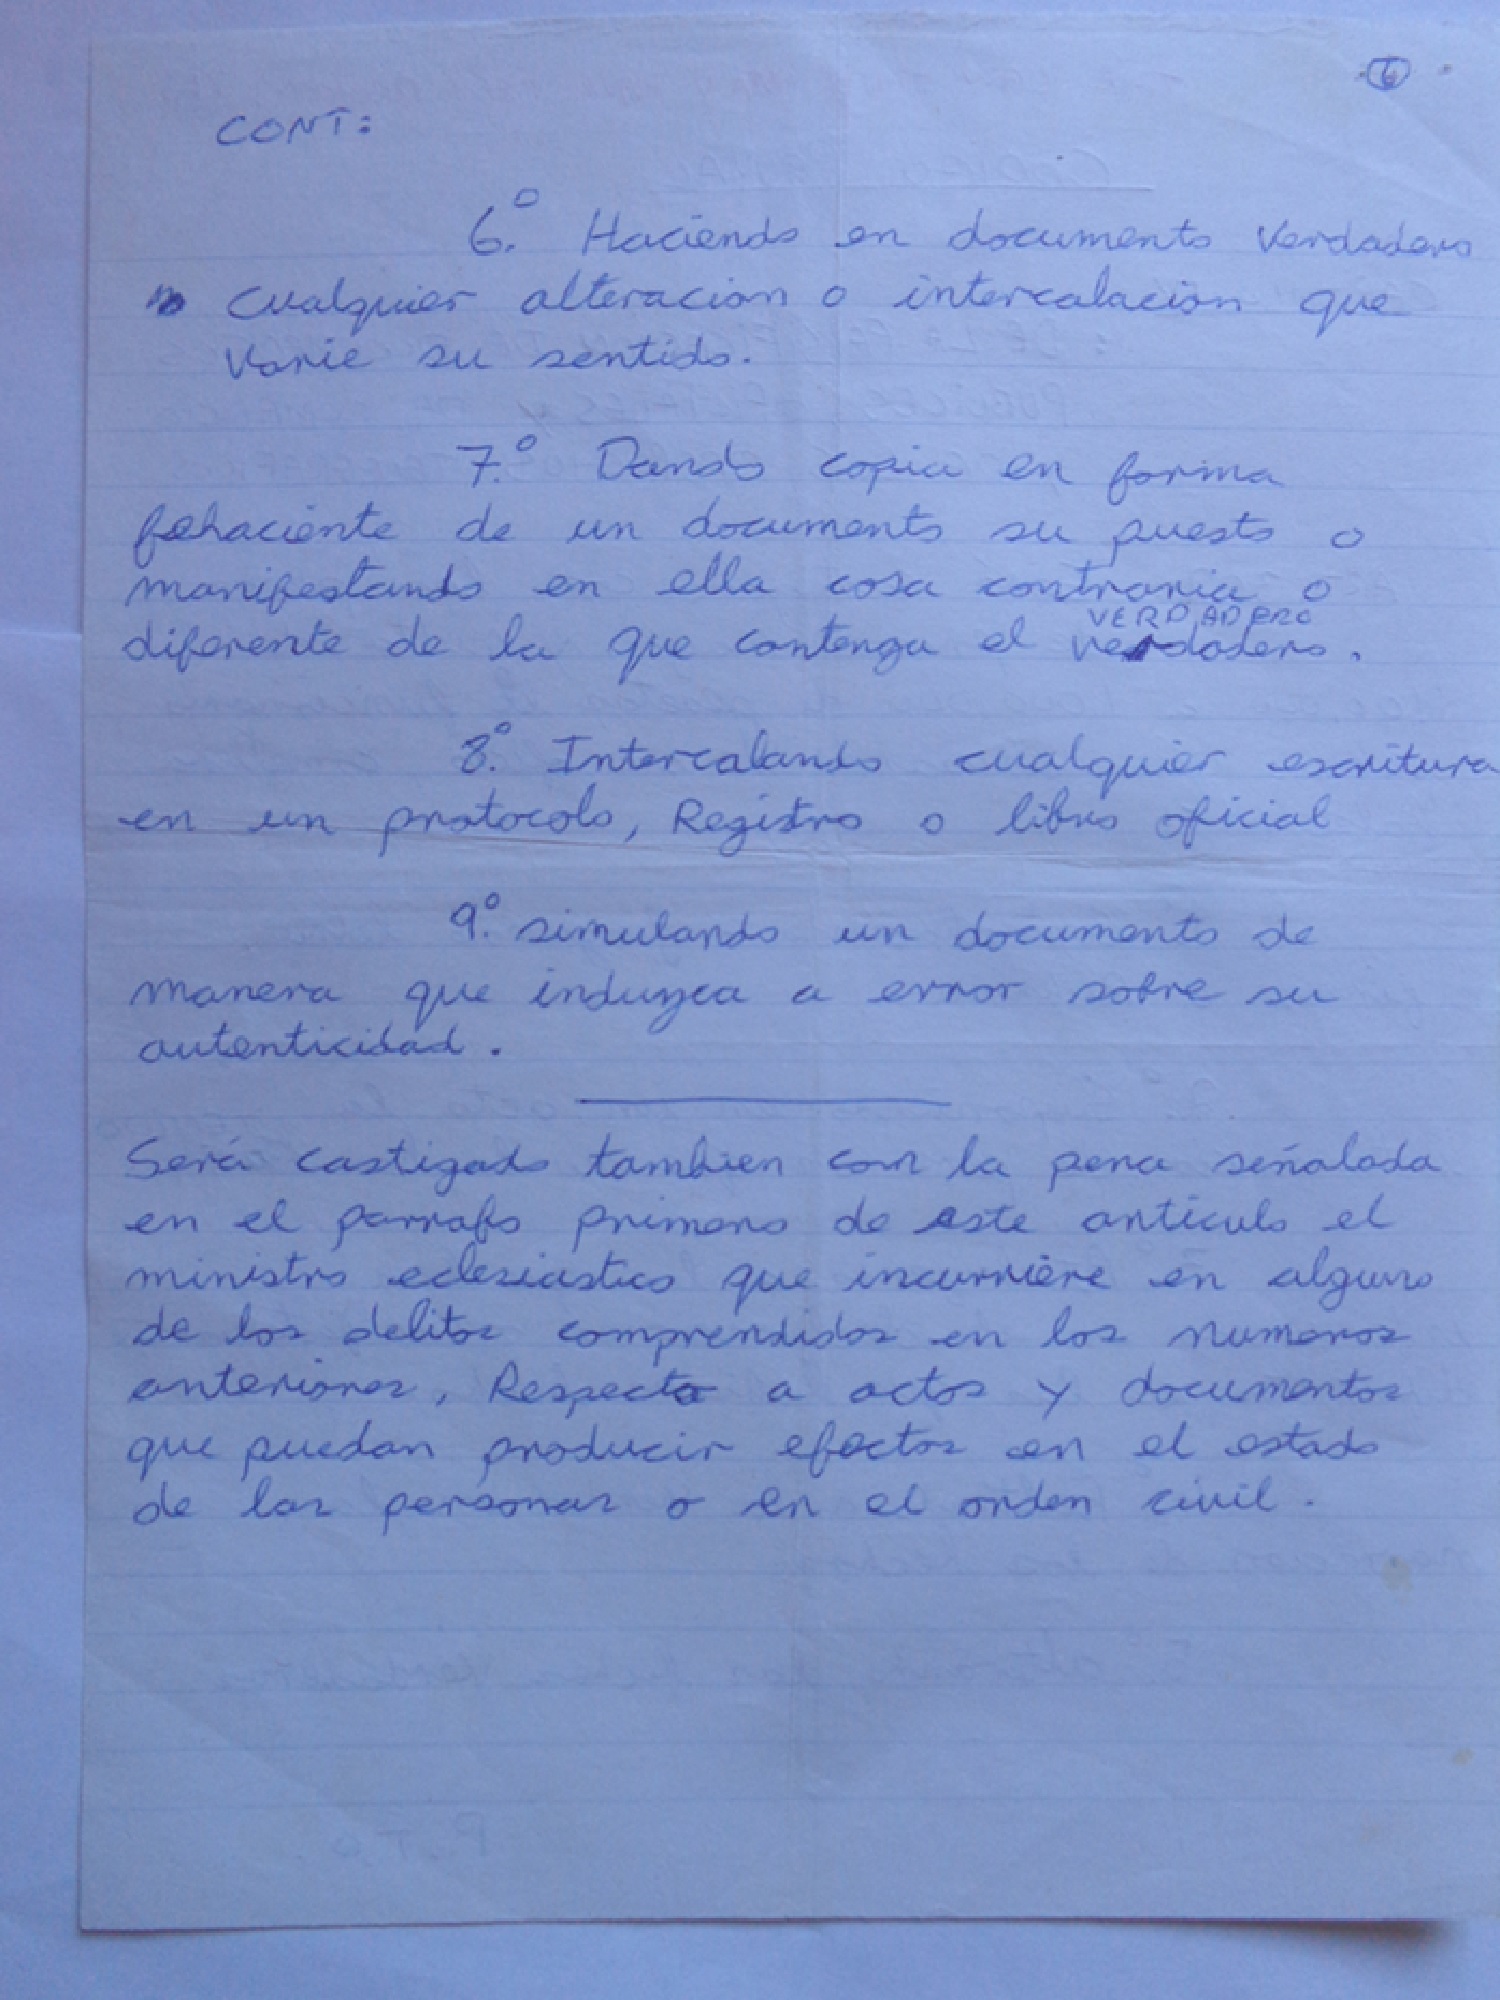 6
CONT:
6.º Haciendo en documento verdadero
cualquier alteracion o intercalacion que
varie su sentido.
7.º Dando copia en forma
fehaciente de un documento su puesto o
manifestando en ella cosa contraria o
VERDADERO
diferente de la que contenga el verdadero.
8.º Intercalando cualquier escritura
en un protocolo, Registro o libro oficial
9.º simulando un documento de
manera que induzca a error sobre su
autenticidad.
Será castigado tambien con la pena señalada
en el parrafo primero de este articulo el
ministro eclesiastico que incurriere en alguno
de los delitos comprendidos en los numeros
anteriores, Respecto a actos y documentos
que puedan producir efectos en el estado
de las personas o en el orden civil.